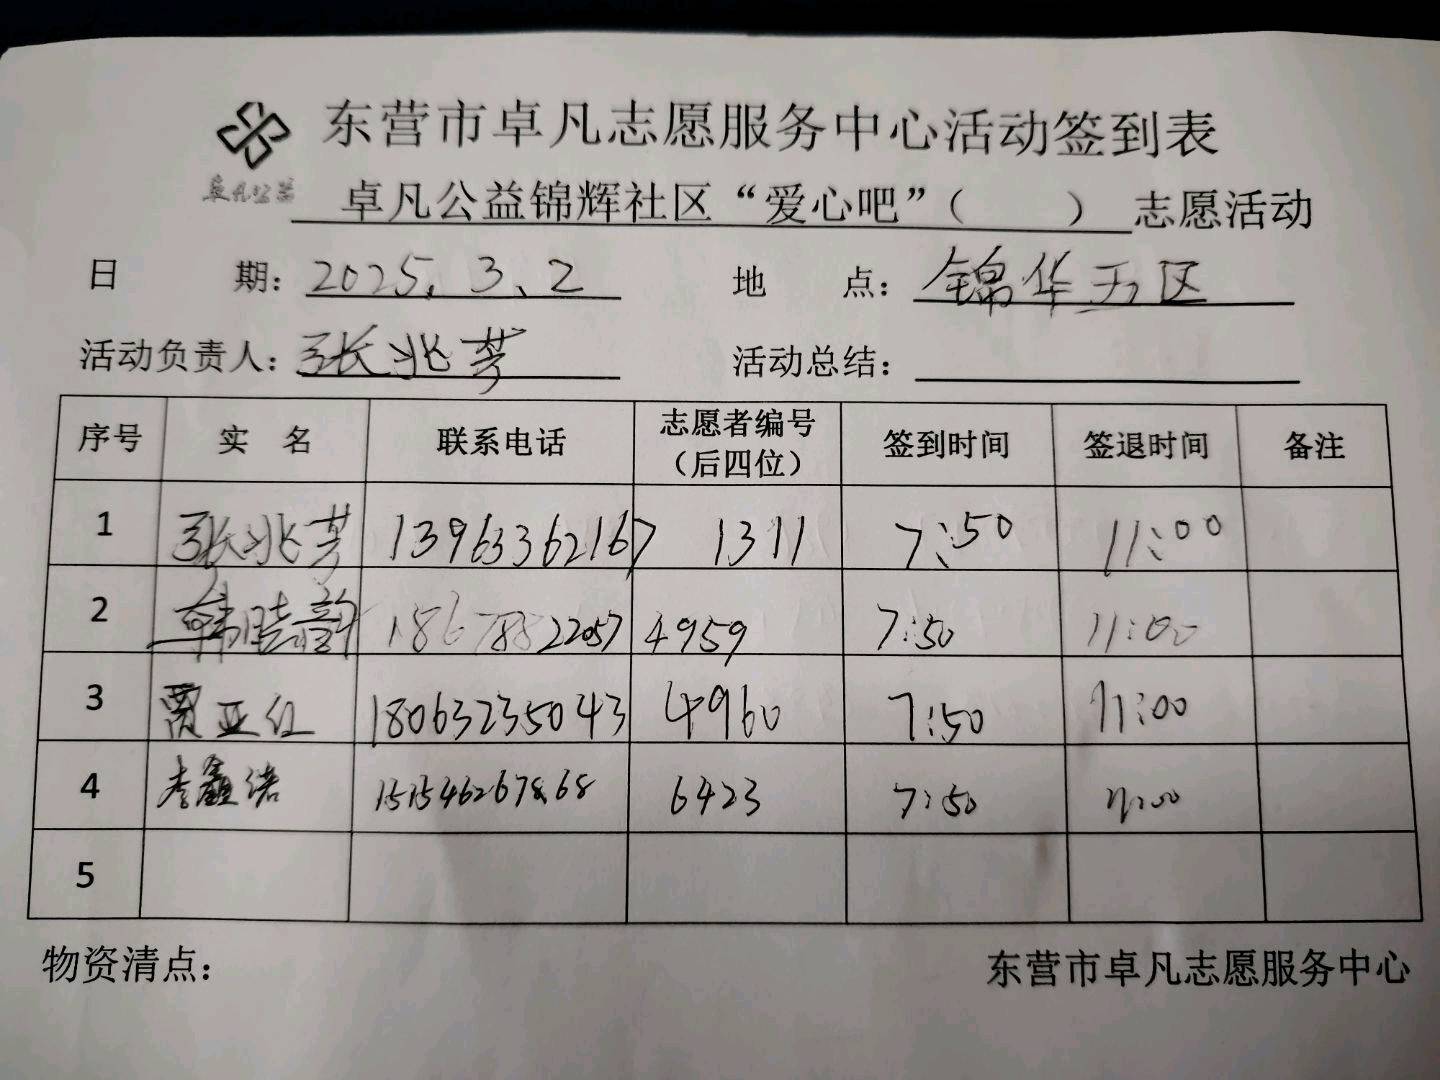 东营市卓凡志愿服务中心活动签到表
卓凡公益
卓凡公益锦辉社区“爱心吧”（ ）志愿活动
日 期：2025.3.2 地 点：锦华五区
活动负责人：张兆芳 活动总结：
序号 实 名 联系电话 志愿者编号（后四位） 签到时间 签退时间 备注
1 张兆芳 13963362167 1311 7:50 11:00
2 韩晓韵 18678822057 4959 7:50 11:00
3 贾亚红 18063235043 4960 7:50 11:00
4 李鑫诺 151546267868 6423 7:50 11:00
5
物资清点： 东营市卓凡志愿服务中心